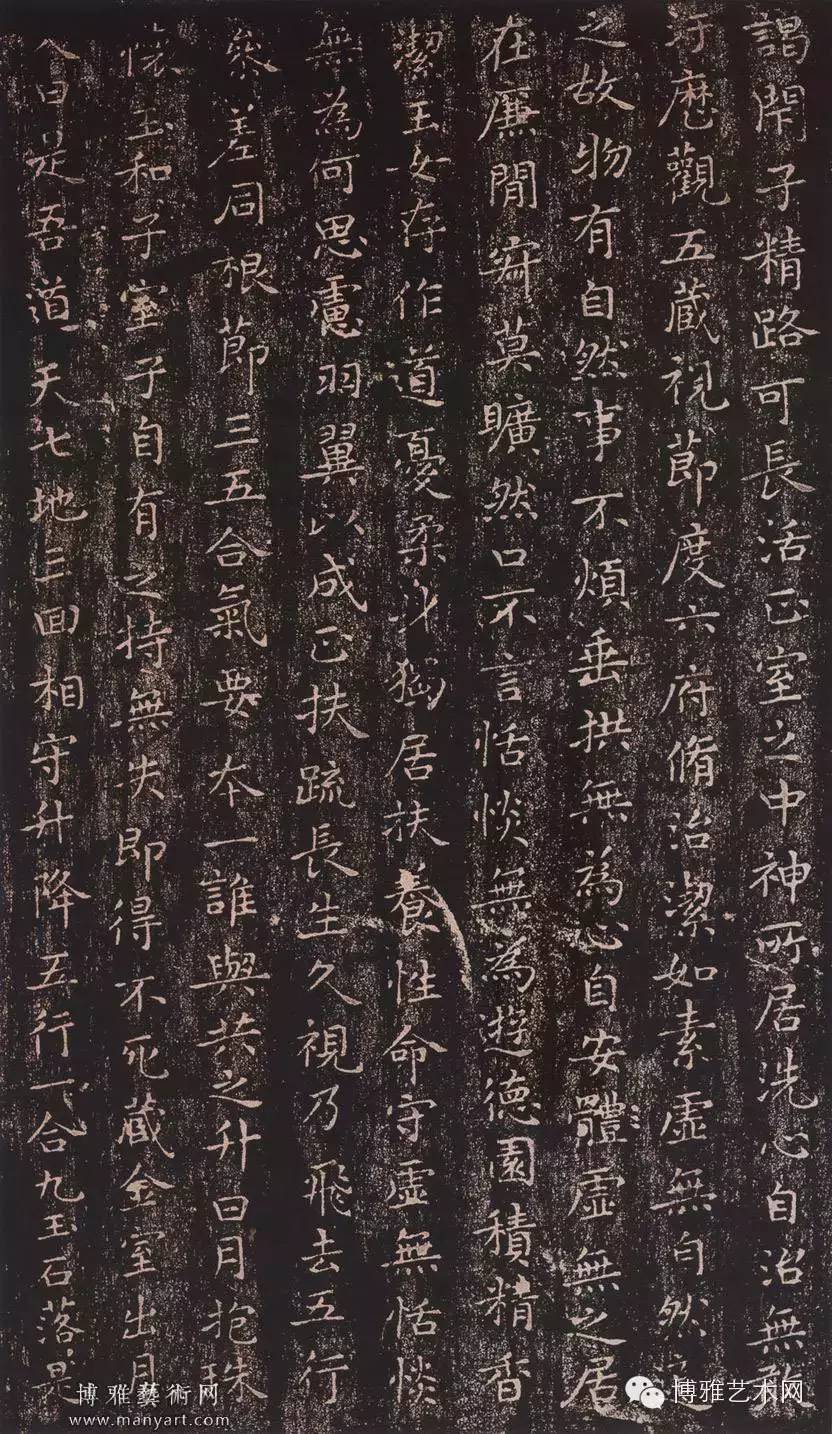 謁閉子精路可長活正室之中神所居洗心自治無敢
汙歷觀五藏視節度六府脩治潔如素虛無自然道
之故物有自然事不煩垂拱無為心自安體虛無之居
在廉間寂莫曠然口不言恬惔無為遊德園積精香
潔玉女存作道憂柔身獨居扶養性命守虛無恬惔
無為何思慮羽翼以成正扶疏長生久視乃飛去五行
參差同根節三五合氣要本一誰與共之升日月抱珠
懷玉和子室子自有之持無失即得不死藏金室出月
入日是吾道天七地三回相守升降五行一合九玉石落是
博雅藝術网
www.manyart.com
博雅艺术网